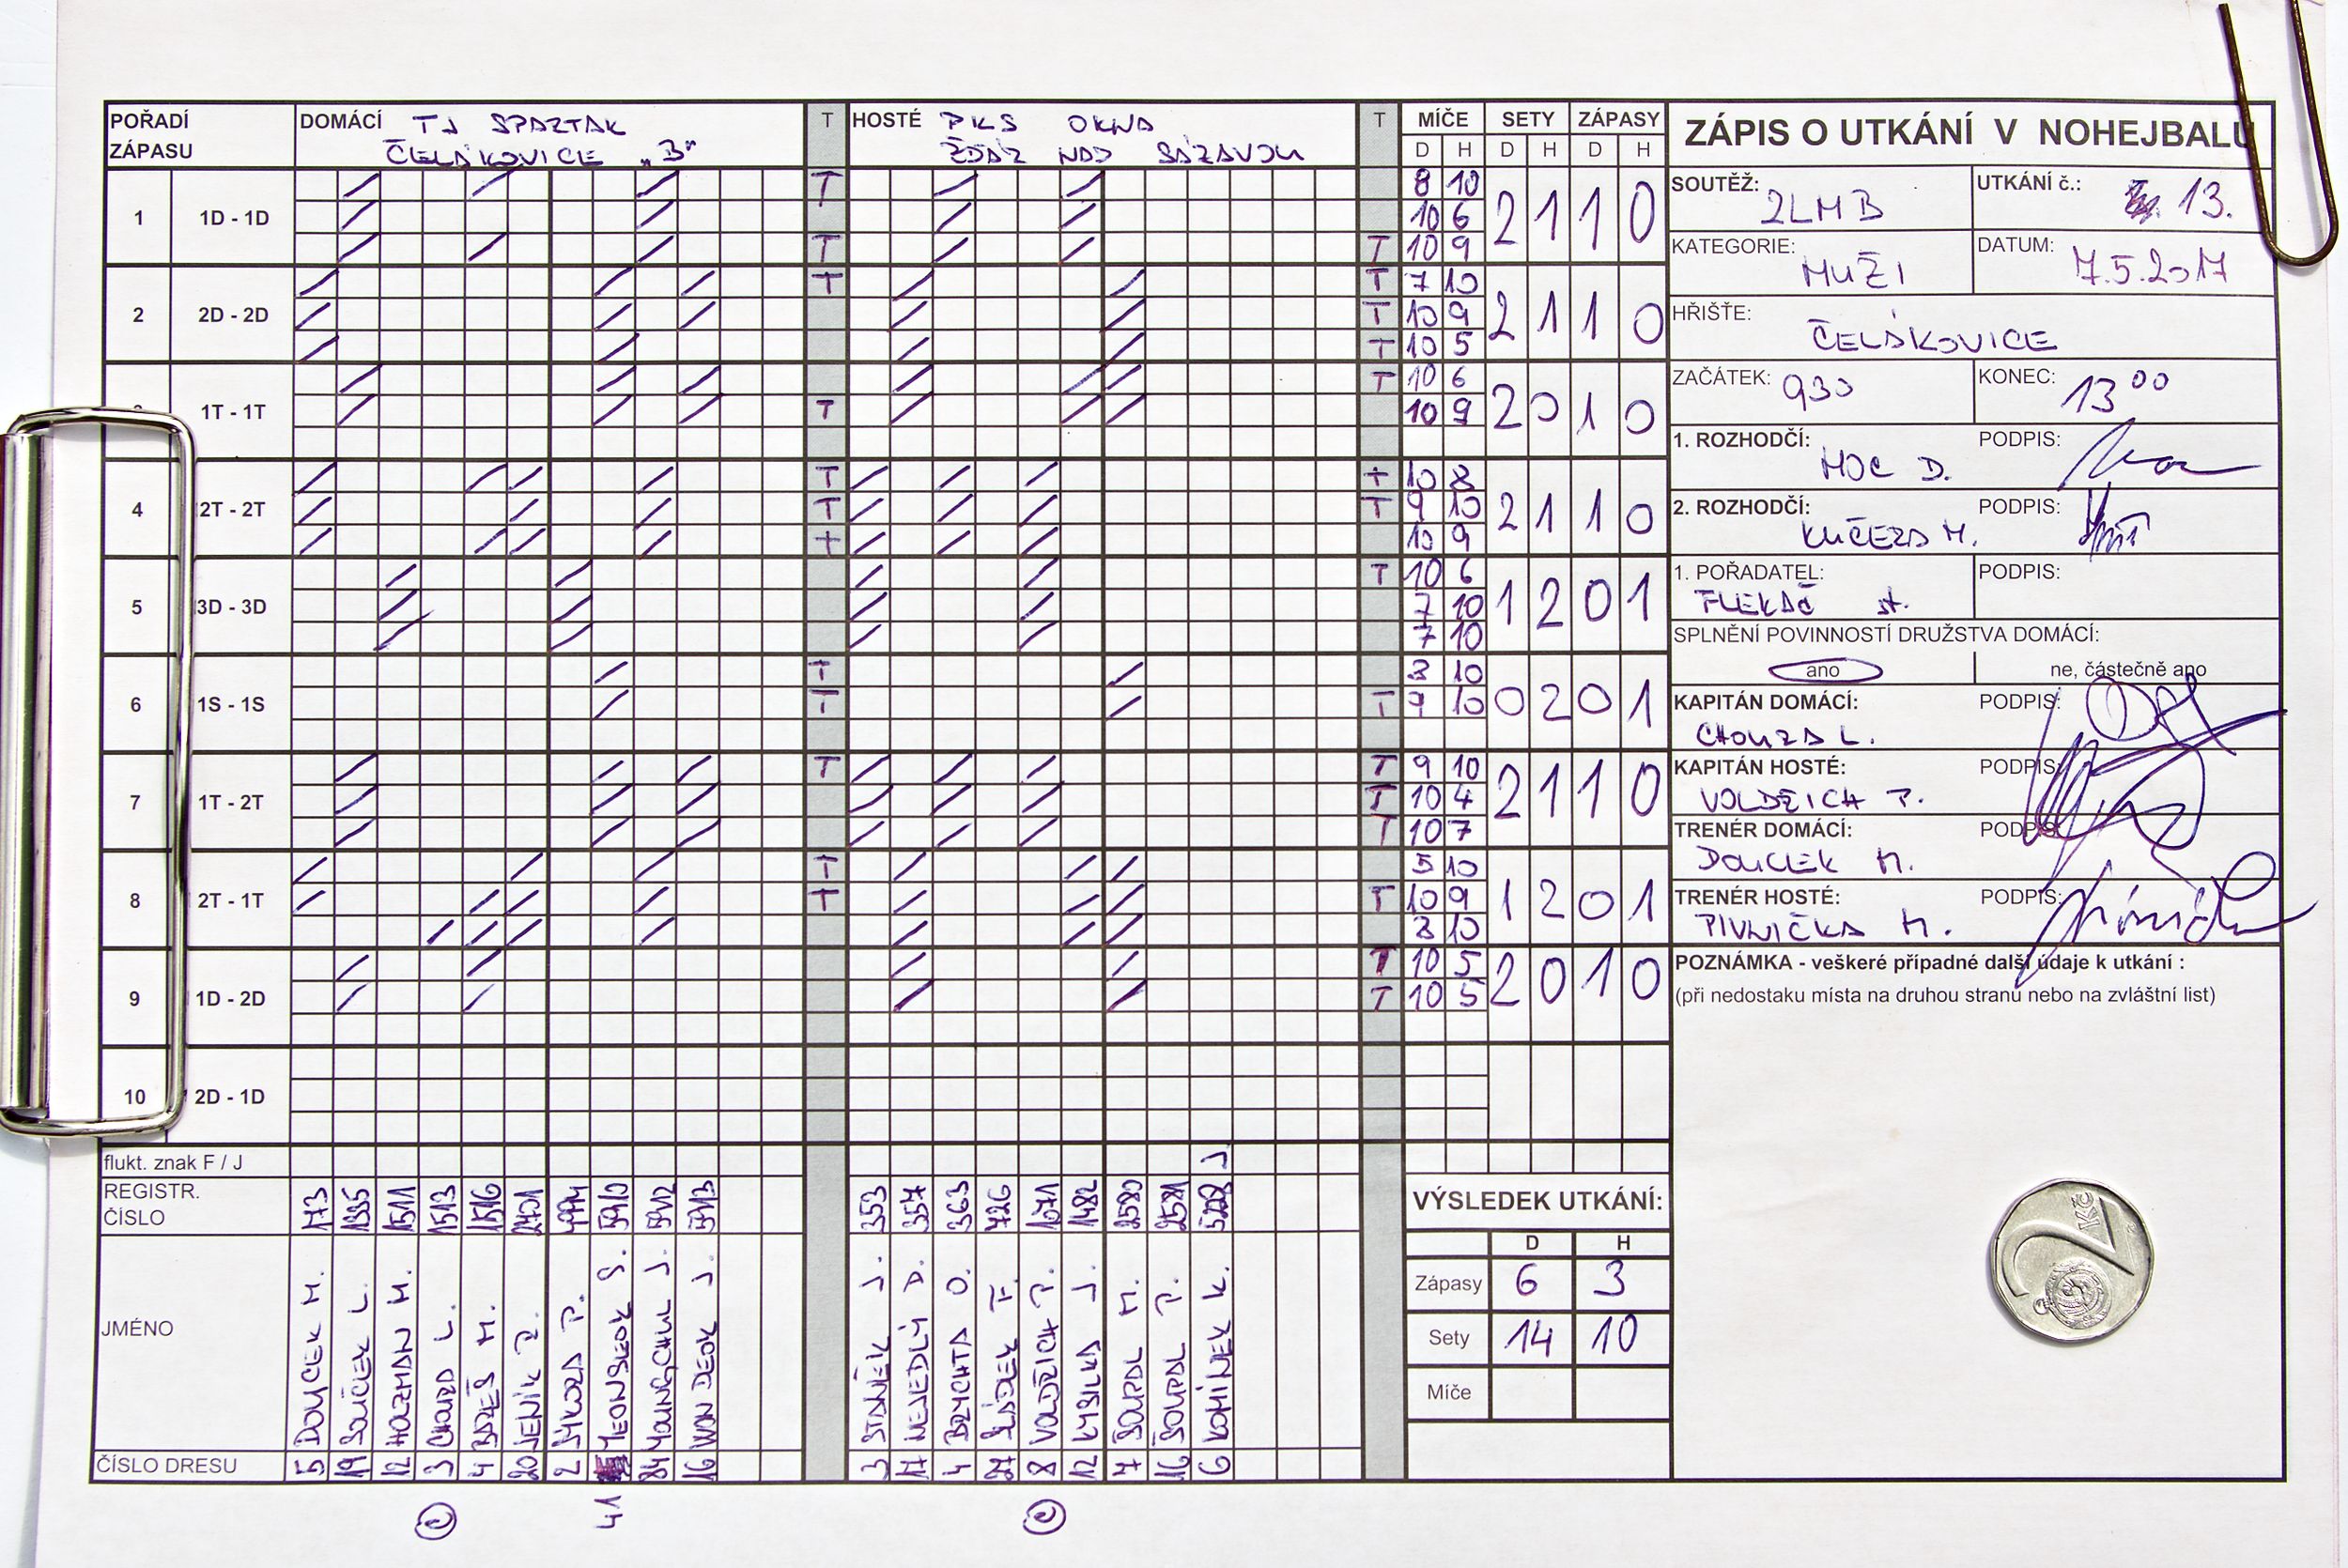 POŘADÍ ZÁPASU
DOMÁCÍ TJ SPARTAK
ČELÁKOVICE „B"
T
HOSTÉ PKS OKNA
ŽĎÁR NAD SÁZAVOU
T
MÍČE SETY ZÁPASY
D H D H D H
1 1D - 1D T 8 10 2 1 1 0
10 6
T T 10 9
2 2D - 2D T T 7 10 2 1 1 0
T 10 9
T 10 5
1T - 1T T 10 6 2 0 1 0
T 10 9
4 2T - 2T T + 10 8 2 1 1 0
T T 9 10
+ 10 9
5 3D - 3D T 10 6 1 2 0 1
7 10
7 10
6 1S - 1S T 3 10 0 2 0 1
T T 9 10
7 1T - 2T T T 9 10 2 1 1 0
T 10 4
T 10 7
8 2T - 1T T 5 10 1 2 0 1
T T 10 9
8 10
9 1D - 2D T 10 5 2 0 1 0
T 10 5
10 2D - 1D
flukt. znak F / J J
REGISTR. ČÍSLO 173 1335 1511 1513 1516 2401 5910 5912 5913 353 354 363 426 1071 1482 2580 2581 5228
JMÉNO DOUCEK M. SOUČEK L. HOLZMAN M. CHOURA L. BAREŠ M. JENÍK P. SÝKORA P. YEONSEOK S. YOUNGCHUL J. WON DEOK J. STANĚK J. NEJEDLÝ D. BRYCHTA O. SLÁDEK F. VOLDŘICH P. KYSILKA J. ŠOUPAL M. ŠOUPAL P. KOMÍNEK K.
ČÍSLO DRESU 5 19 12 3 4 20 2 84 16 3 17 4 27 8 12 7 16 6
C 41 C
VÝSLEDEK UTKÁNÍ:
D H
Zápasy 6 3
Sety 14 10
Míče
ZÁPIS O UTKÁNÍ V NOHEJBALU
SOUTĚŽ: 2LMB UTKÁNÍ č.: 13.
KATEGORIE: MUŽI DATUM: 7.5.2017
HŘIŠTĚ: ČELÁKOVICE
ZAČÁTEK: 930 KONEC: 13 00
1. ROZHODČÍ: MOC D. PODPIS:
2. ROZHODČÍ: KUČERA M. PODPIS:
1. POŘADATEL: FLEKAČ st. PODPIS:
SPLNĚNÍ POVINNOSTÍ DRUŽSTVA DOMÁCÍ:
ano ne, částečně ano
KAPITÁN DOMÁCÍ: CHOURA L. PODPIS:
KAPITÁN HOSTÉ: VOLDŘICH P. PODPIS:
TRENÉR DOMÁCÍ: DOUCEK M. PODPIS:
TRENÉR HOSTÉ: PIVNIČKA M. PODPIS:
POZNÁMKA - veškeré případné další údaje k utkání :
(při nedostaku místa na druhou stranu nebo na zvláštní list)
2 Kč